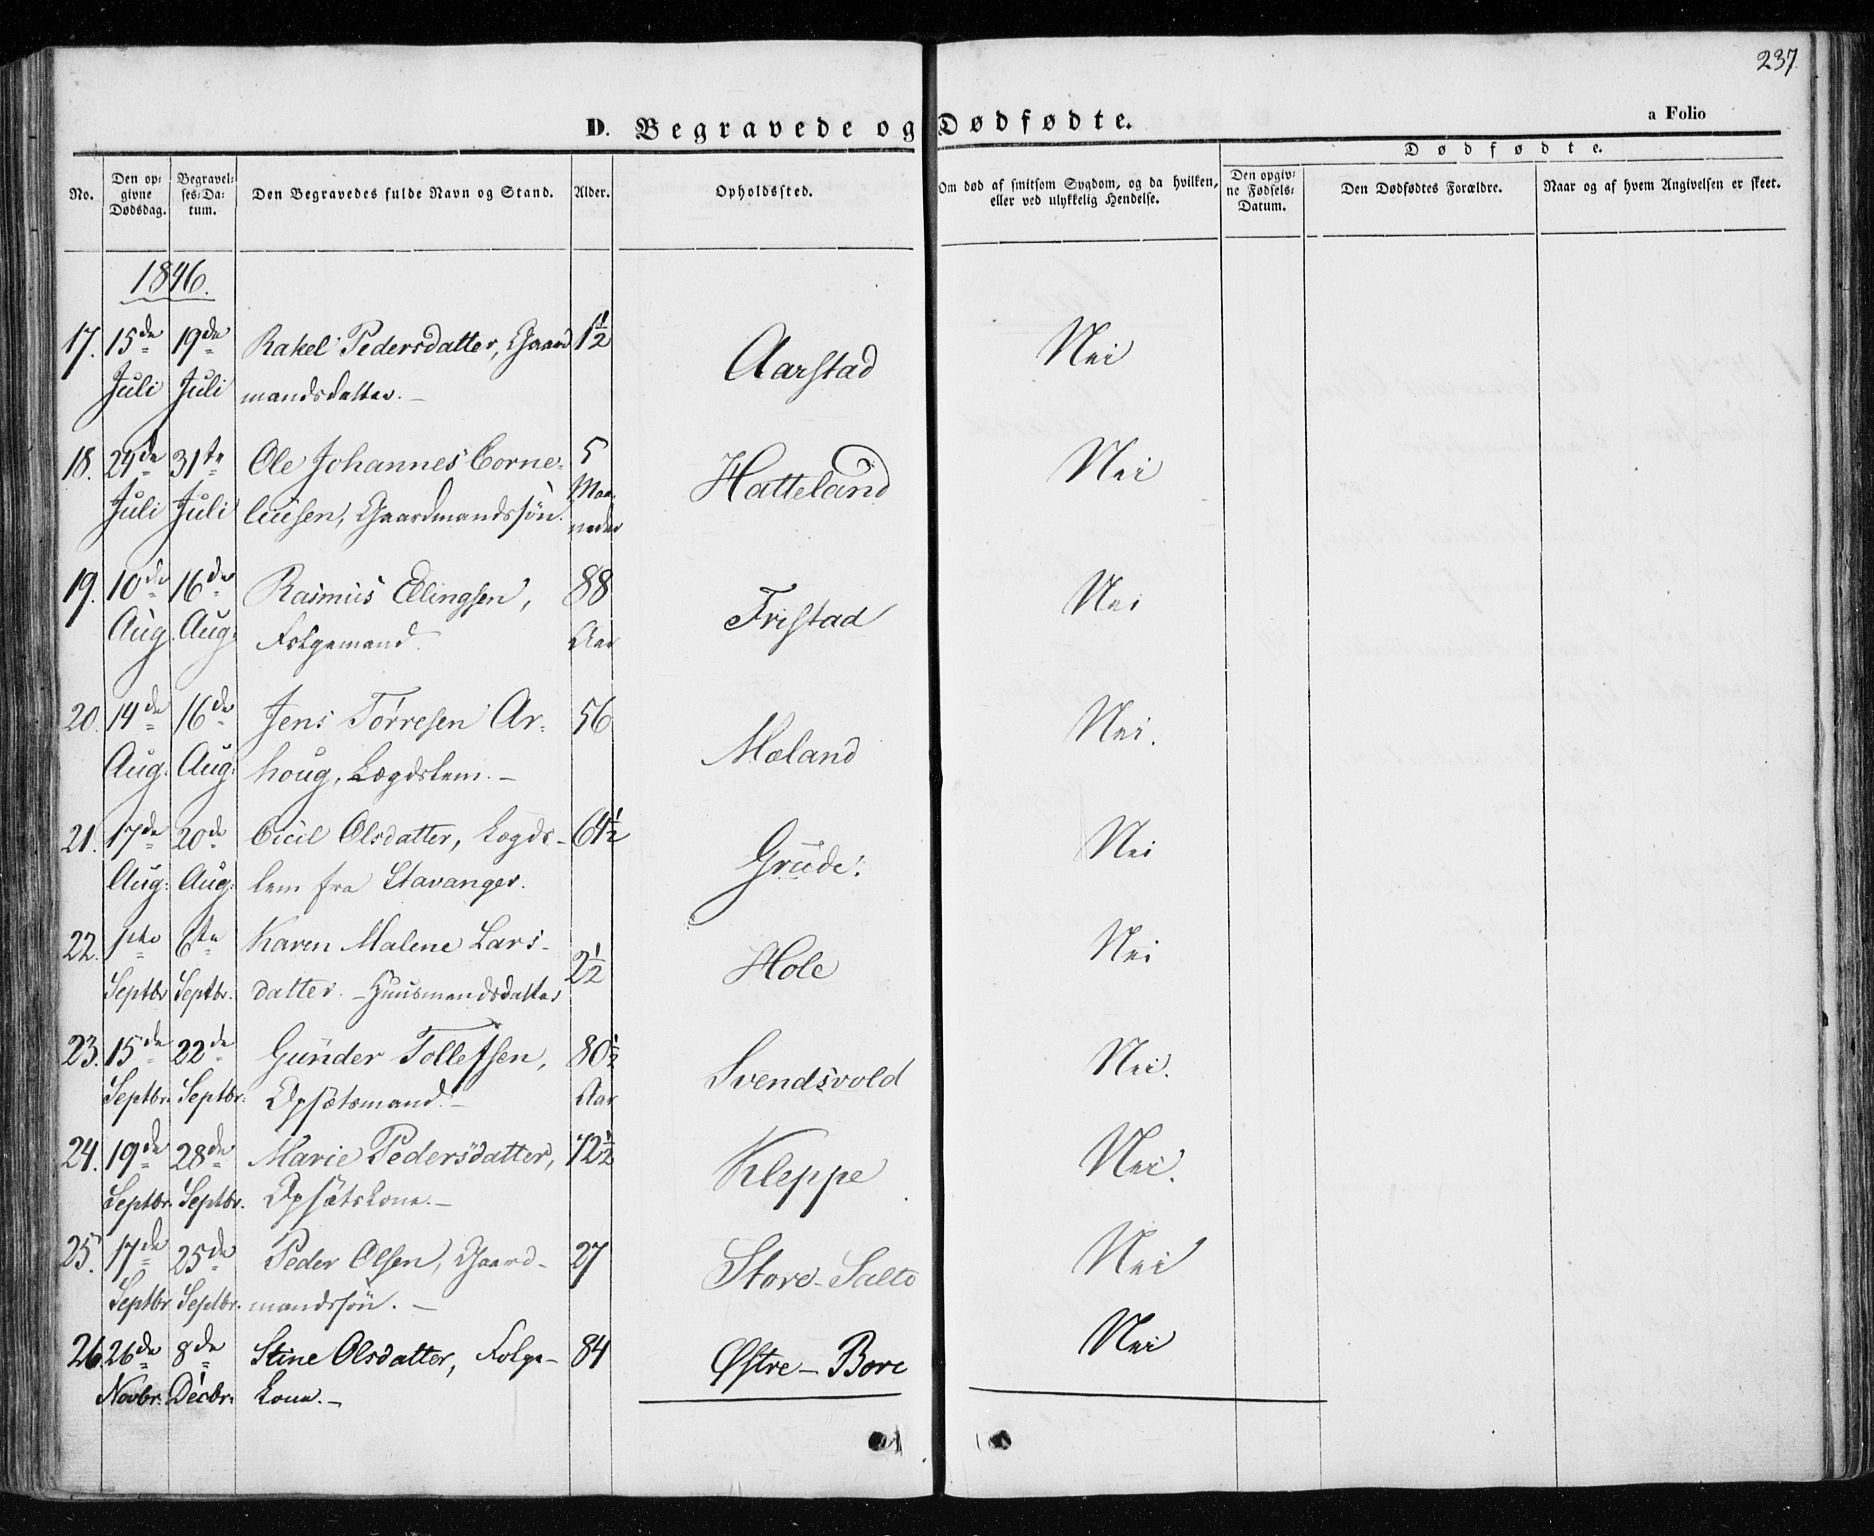 237.
D. Begravede og Dødfødte.
a Folio
Dødfødte.
No.
Den opgivne Dødsdag.
Begravelses-Datum.
Den Begravedes fulde Navn og Stand.
Alder.
Opholdssted.
Om død af smitsom Sygdom, og da hvilken, eller ved ulykkelig Hendelse.
Den opgivne Fødsels-Datum.
Den Dødfødtes Forældre.
Naar og af hvem Angivelsen er skeet.
1846.
17. 15de 19de Rakel Pedersdatter, Gaard 1½ Aarstad Nei
Juli Juli mandsdatter. –
18. 24de 31te Ole Johannes Corne- 5 Hatteland Nei
Juli Juli liusen, Gaardmandssøn. Maa
neder
19. 10de 16de Rasmus Ellingsen, 88 Fristad Nei
Aug. Aug: Folgemand. Aar
20. 14de 16de Jens Tørresen Ar- 56 Mæland Nei.
Aug. Aug: houg, Lægdslem. –
21. 17de 20de Cicil Olsdatter, Lægds- 64½ Grude. Nei
Aug: Aug: lem fra Stavanger.
22. 1ste 6te Karen Malene Lars- 2½ Hole Nei
Septbr Septbr. datter. – Huusmandsdatter
23. 15de 22de Gunder Tollefsen, 80½ Svendsvold Nei.
Septbr. Septbr. Opsætsmand. – Aar
24. 19de 28de Marie Pedersdatter, 72½ Kleppe Nei.
Septbr. Septbr. Opsætskone. –
25. 17de 25de Peder Olsen, Gaard- 27 Store-Salte Nei
Septbr Septbr. mandssøn. –
26. 26de 8de Stine Olsdatter, Folge- 84 Østre-Bore Nei
Novbr. Decbr. kone. –